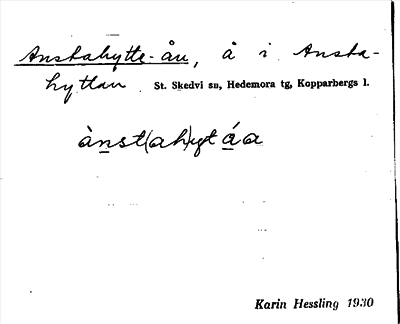 Anstahytte-ån, å i Ansta-
hyttan. St. Skedvi sn, Hedemora tg, Kopparbergs l.
ànst(ah)yt áa
Karin Hessling 1930